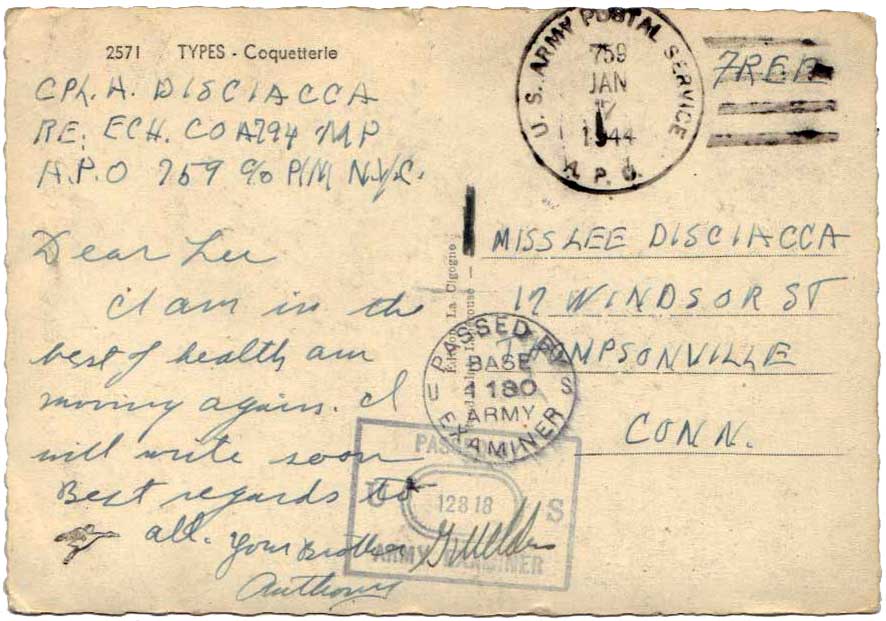 2571 TYPES - Coquetterie
CPL. A. DISCIACCA
RE. ECH. CO A794 MP
A.P.O 759 c/o P/M N.Y.C.
Dear Lee
I am in the
best of health am
moving again. I
will write soon
Best regards to
all. Your Brother
Anthony
U. S. ARMY POSTAL SERVICE
759
JAN
1944
A. P. O.
FREE
MISS LEE DISCIACCA
17 WINDSOR ST
THOMPSONVILLE
CONN.
Edition La Cigogne
PASSED BY
BASE
U 1180 S
ARMY
EXAMINER
PASSED
U 12818 S
ARMY EXAMINER